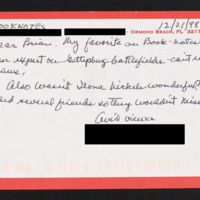 OOKNOTES
ORMOND BEACH, FL 3217
12/21/98
ear Brian, My favorite on Book-notes
an expert on Gettysburg battlefields - can't r
ame.
Also Wasn't Ilona Nickels wonderful?
ed several friends so they wouldn't miss
Avid viewer